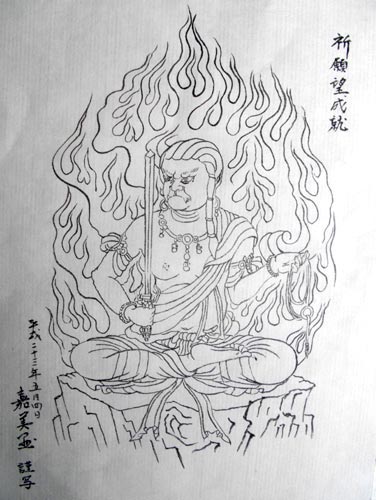 祈願望成就
平成二十三年五月四日
嘉 謹写